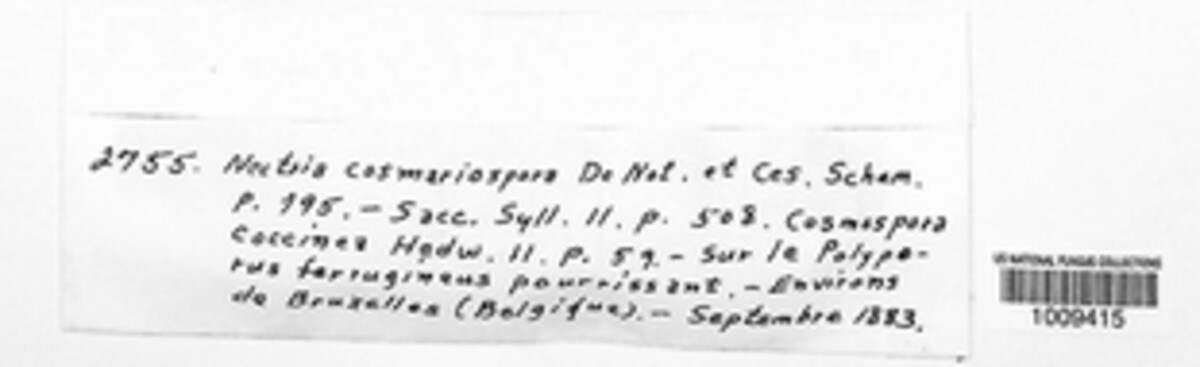 2755. Nectria cosmariospora De Not. et Ces. Schem.
p. 195. — Sacc. Syll. II. p. 508. Cosmospora
coccinea Hgdw. II. p. 59. — Sur le Polypo-
rus ferrugineus pourrissant. — Environs
de Bruxelles (Belgique). — Septembre 1883.
US NATIONAL FUNGUS COLLECTIONS
1009415